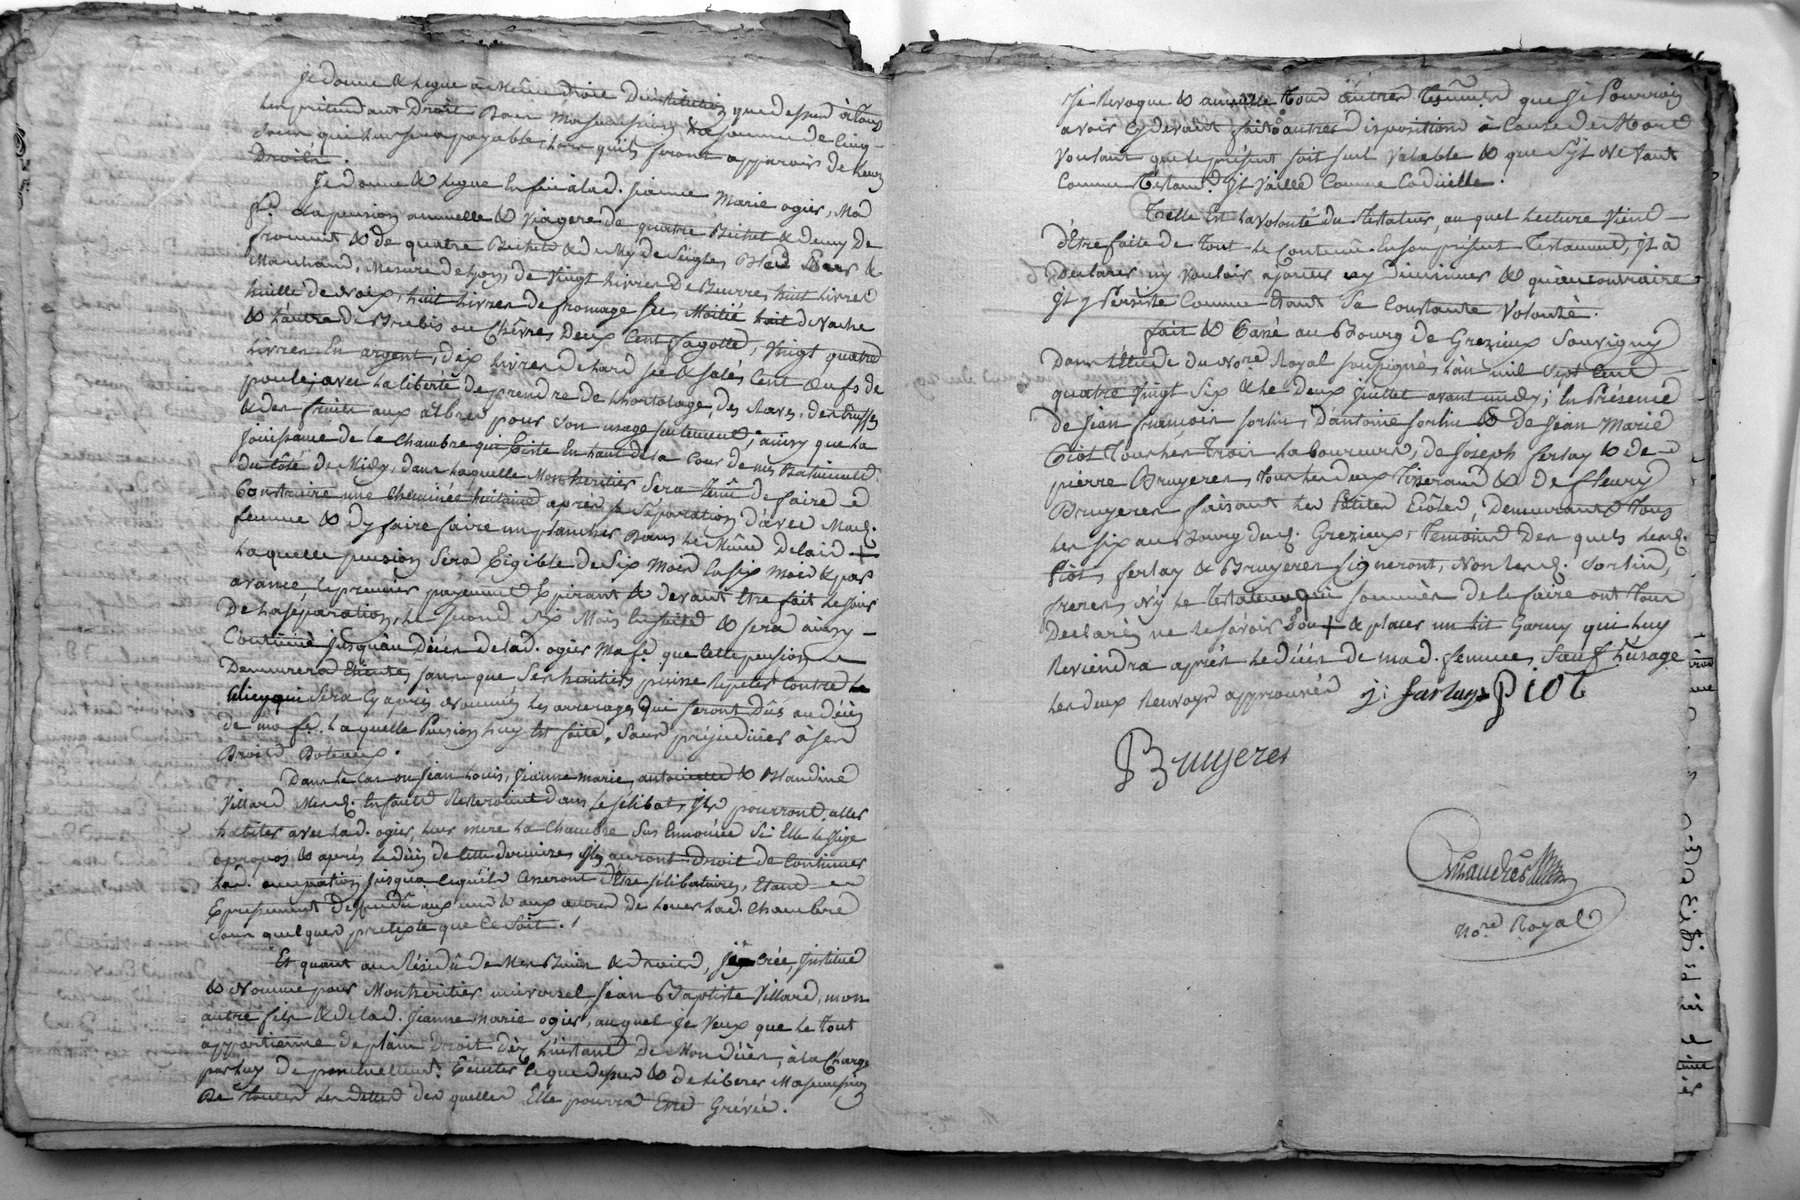 Je donne & legue à même Droit D'institution que dessus à tous
les pretendant Droit Dans ma succession la somme de Cinq
Sous qui leur sera payable lors qu'ils feront apparoir de leurs
Droits.
Je donne & legue En fin à lad. jeanne Marie ogier, Mad.
fe. La pension annuelle & Viagere de quatre Bichet & demy De
froment & de quatre Bichets & demy de Seigle, Bled Beau &
Marchand, Mesure de Lyon, de Vingt Livres De Beurre, huit Livres
huille de noix, huit Livres de fromage sec, Moitié lait de Vache
& l'autre de Brebis ou Chêvre, Deux Cent fagotts, Vingt quatre
Livres En argent, dix Livres de Lard sec & salé, Cent Œufs de
poule, avec la liberté de prendre de L'hortolage, des Raves,
& des fruits aux arbres pour son usage seulement, ainsy que la
jouissance de la Chambre qui Existe En haut de la Cour de mes Batiments
du Côté de Midy, dans laquelle Mon heritier Sera tenû de faire
Construire une Cheminée huitaine après sa Separation d'avec Mad.
femme & d'y faire faire un plancher Dans le Même Delais +
Laquelle pension Sera Exigible de Six Mois En six Mois & par
avance, le premier payement Expirant & devant Etre fait le jour
De la separation, le second six Mois Ensuite & sera ainsy
Continué jusqu'au Décès de lad. ogier Ma fe. que cette pension
Demeurera Eteinte, sans que Ses heritiers puisse Repeter Contre le
Celuy qui Sera Cy après nommé les arrerages qui seront Dûs au décès
de ma fe. Laquelle Pension luy Est faite, Sans prejudicier à ses
Droits Doteaux.
Dans le Cas ou jean Louis, jeanne marie, antoinette & Blandine
Villard Mesd. Enfants Resteroient dans le Célibat, ils pourront aller
habiter avec lad. ogier, leur mere la Chambre Sus Ennoncée Si Elle le juge
apropos & après le décès de cette derniere, ils auront Droit de Continuer
lad. occupation jusqu'a ce qu'ils Cesseront d'être Celibataires, Etant
Expressement deffendu aux uns & aux autres de Louer lad. Chambre
sous quelques pretexte que Ce Soit.
Et quant au Résidû de Mes Biens & droits, j'ay Créé, Institué
& Nomme pour Mon heritier universel Jean Baptiste Villard, mon
autre fils & de lad. Jeanne Marie ogier, auquel je Veux que le tout
appartienne de plain Droit dès L'instant de Mon Décès, à la Charge
par Luy de ponctuellemt. Executer Ce que dessus & de Liberer Ma succession
de toutes les dettes des quelles Elle pourra Etre Grevée.
Je Revoque & annulle tous autres Testaments que Je Pourrois
avoir Cy devant faits & autres dispositions à Cause de Mort
Voulant que le présent soit seul Valable & que S'il Ne Vaut
Comme Testamt. Il Vaille Comme Codicille.
Telle Est la Volonté du Testateur, au quel Lecture Vient
d'Etre faite de tout le Contenû En son présent Testament, il à
Declarer n'y Vouloir ajouter ny Diminuer & qu'au contraire
il y Persiste Comme Etant Sa Constante Volonté.
fait & Passé au Bourg de Grezieux Souvigny
Dans L'étude du Nore. Royal soussigné, L'an mil Sept Cent
quatre Vingt Six & le Deux Juillet avant midy, En Présence
de Jean francois sorlin, D'antoine sorlin & de Jean Marie
Piot Tous les Trois Laboureurs, de Joseph ferlay & de
pierre Bruyeres, tous les deux Tisserand & de fleury
Bruyeres faisant les Petites Ecôles, Demeurants tous
les six au Bourg dud. Grezieux, Temoins Des quels lesd.
Piot, ferlay & Bruyeres signeront, Non lesd. Sorlin,
freres, N'y le Testateur qui sommés de le faire ont tous
Declarés ne le savoir + & placer un lit Garny qui luy
Reviendra après le Décès de mad. femme, Sauf L'usage
les deux Renvoys approuvés j: ferlay Piot
Bruyeres
Nore. Royal